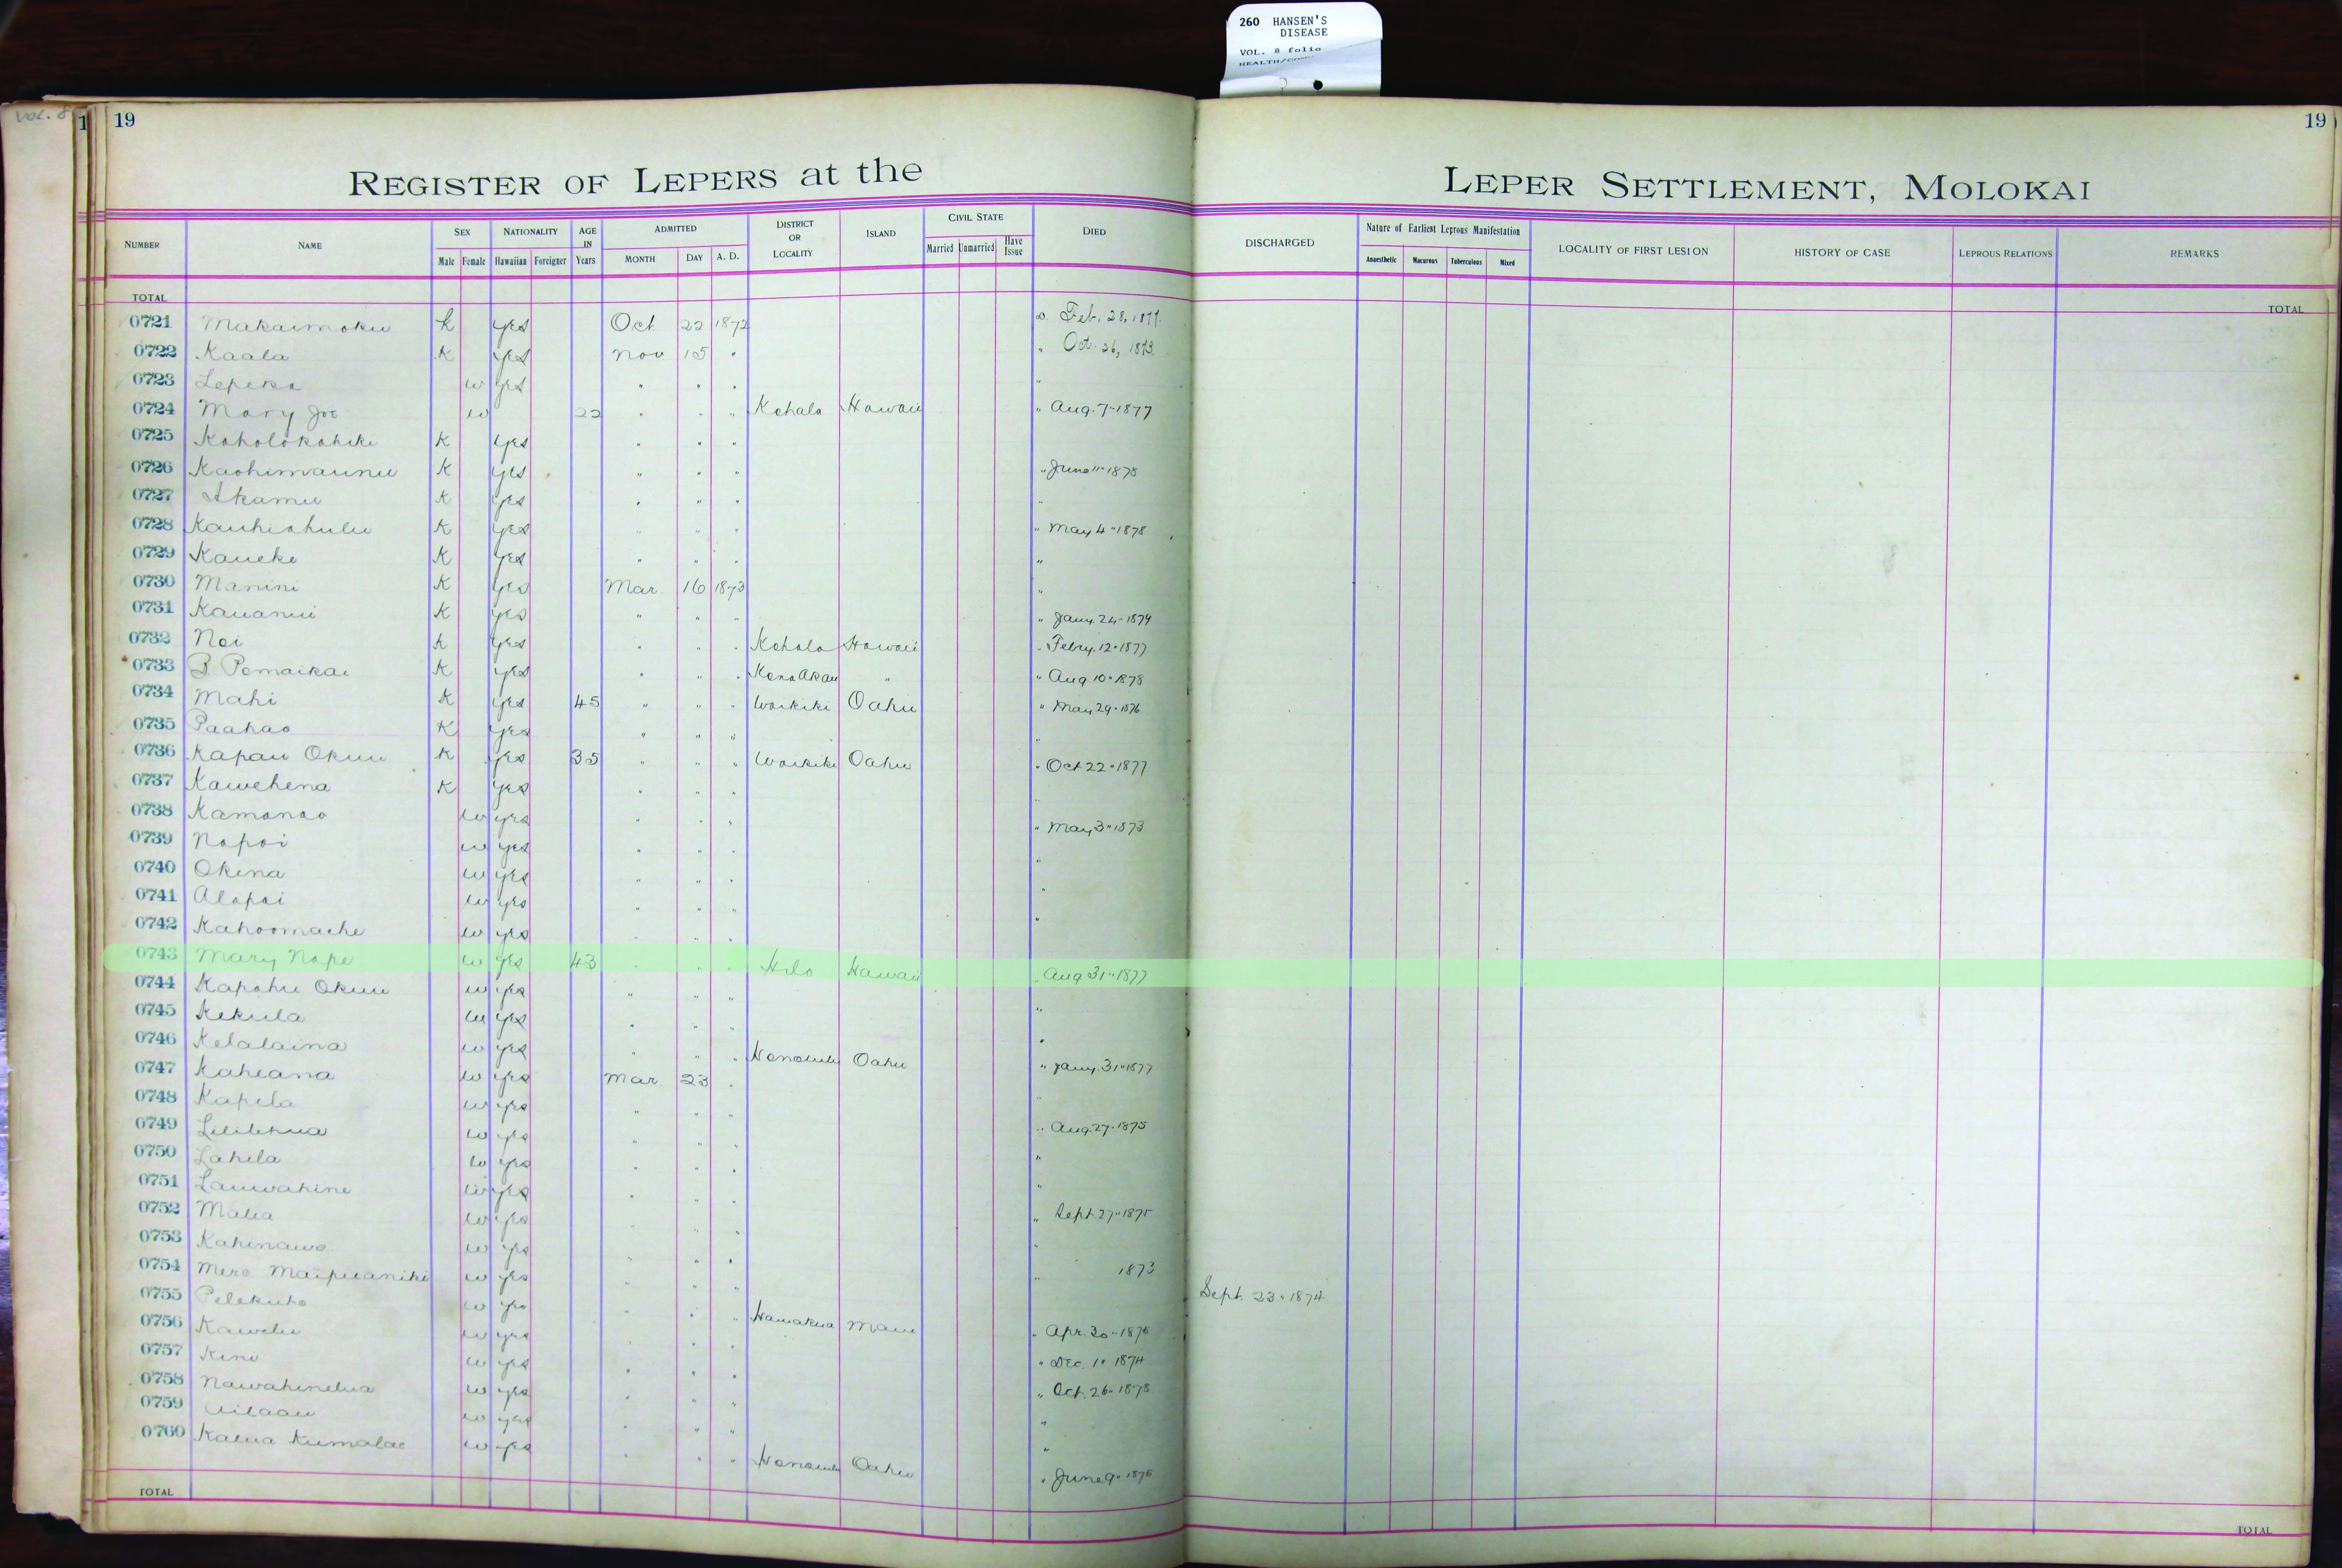 260 HANSEN'S
DISEASE
VOL. 8 folio
VOL. 8
1 19
19
REGISTER OF LEPERS at the LEPER SETTLEMENT, MOLOKAI
NUMBER NAME SEX Male Female NATIONALITY Hawaiian Foreigner AGE IN Years ADMITTED MONTH DAY A. D. DISTRICT OR LOCALITY ISLAND CIVIL STATE Married Unmarried Have Issue DIED DISCHARGED Nature of Earliest Leprous Manifestation Anaesthetic Macurous Tuberculous Mixed LOCALITY OF FIRST LESION HISTORY OF CASE LEPROUS RELATIONS REMARKS
TOTAL TOTAL
0721 Makaimoku K yes Oct. 22 1872 D. Feb. 28, 1877.
0722 Kaala K yes Nov 15 " " Oct. 26, 1873.
0723 Lepeka w yes " " " "
0724 Mary Joe w 22 " " " Kohala Hawaii " Aug. 7-1877
0725 Koholokahiki K yes " " "
0726 Kaohimaunu K yes " " " " June 11-1878
0727 Akamu K yes " " " "
0728 Kauhiahulu K yes " " " " May 4-1878
0729 Kaueke K yes " " " "
0730 Manini K yes Mar 16 1873 "
0731 Kauanui K yes " " " " Jany. 24-1879
0732 Noi K yes " " " Kohala Hawaii " Febry. 12-1877
0733 B Pomaikai K yes " " " Kona Akau " " Aug 10-1878
0734 Mahi K yes 45 " " " Waikiki Oahu " May 29-1876
0735 Paahao K yes " " " "
0736 Kapau Okuu K yes 35 " " " Waikiki Oahu " Oct 22-1877
0737 Kawehena K yes " " " "
0738 Kamanao w yes " " " " May 3-1873
0739 Napoi w yes " " " "
0740 Okina w yes " " " "
0741 Alapai w yes " " " "
0742 Kahoomache w yes " " "
0743 Mary Nape w yes 43 " " " Hilo Hawaii " Aug 31-1877
0744 Kapahu Okuu w yes " " " "
0745 Kekula w yes " " " "
0746 Kelalaina w yes " " " Honolulu Oahu " Jany. 31-1877
0747 Kaheana w yes Mar. 23 " "
0748 Kapela w yes " " " " Aug. 27-1875
0749 Lililehua w yes " " " "
0750 Lahela w yes " " " "
0751 Lauwahine w yes " " " " Sept. 27-1875
0752 Malia w yes " " " "
0753 Kahinawe w yes " " " " 1873
0754 Mere Maipuaniki w yes " " " Sept. 23-1874
0755 Pelekuho w yes " " " Hamakua Maui " Apr. 30-1876
0756 Kawelu w yes " " " " Dec. 10 1874
0757 Kini w yes " " " " Oct. 26-1878
0758 Nawahinelua w yes " " " "
0759 Ailaau w yes " " " "
0760 Kalua Kumalae w yes " " " Honolulu Oahu " June 9-1876
TOTAL TOTAL